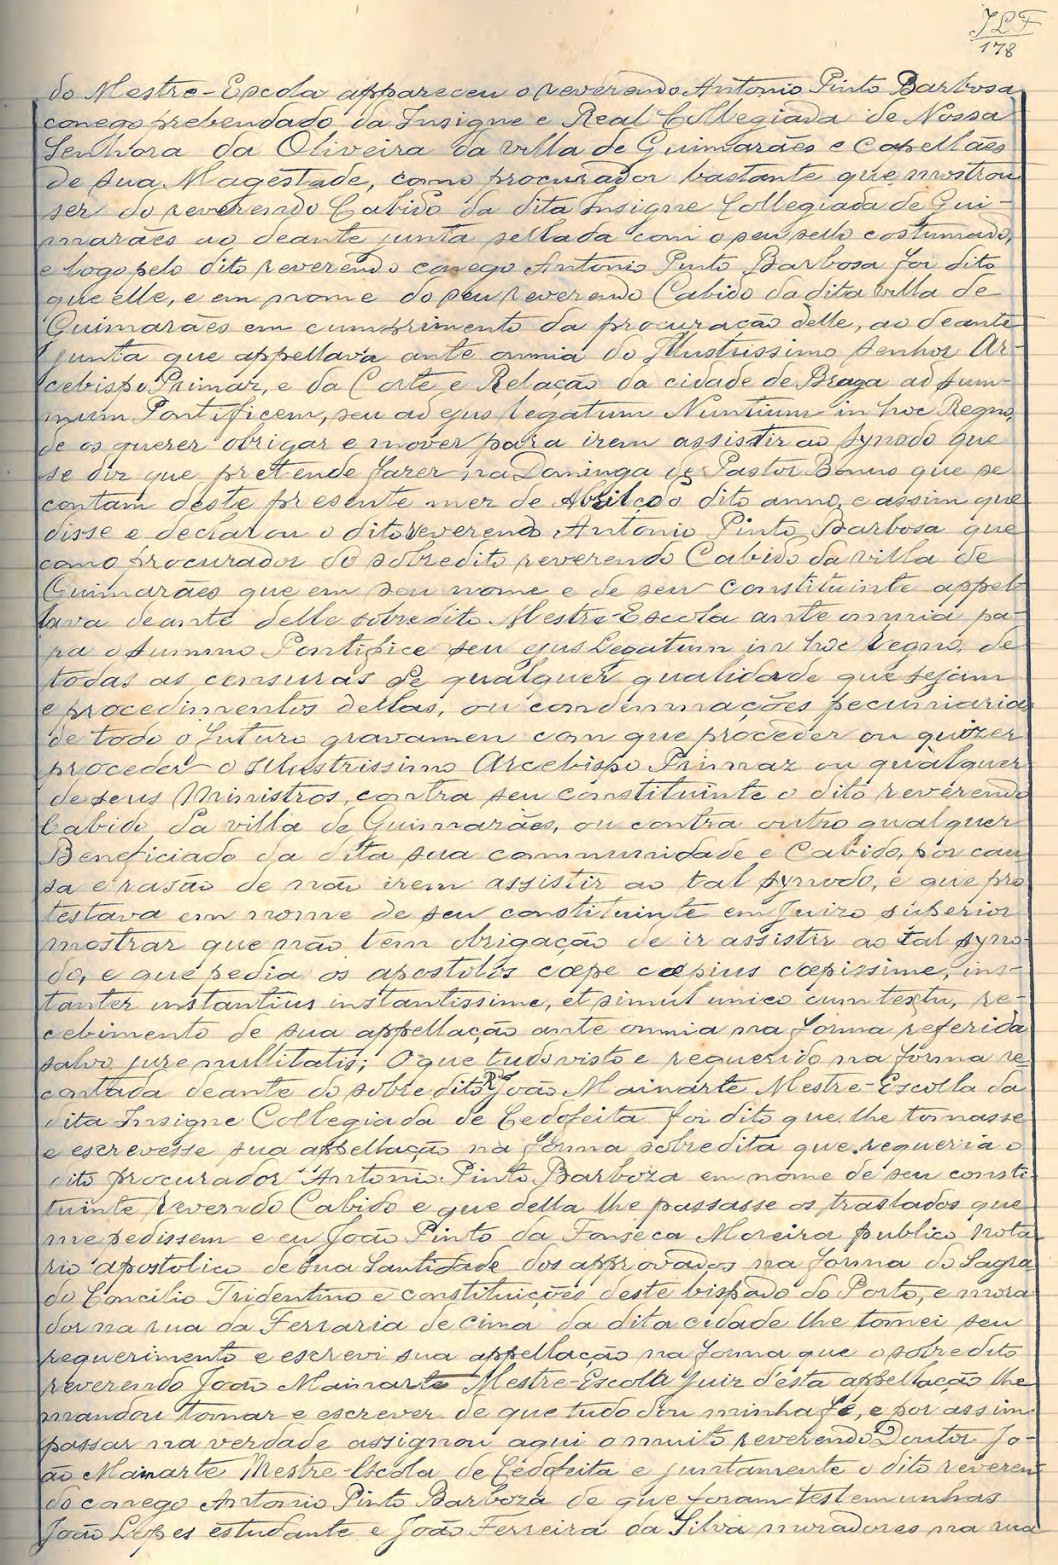 JLF
178
do Mestre-Escola appareceu o reverendo Antonio Pinto Barbosa
conego prebendado da Insigne e Real Collegiada de Nossa
Senhora da Oliveira da villa de Guimarães e Capellães
de sua Magestade, como procurador bastante que mostrou
ser do reverendo Cabido da dita Insigne Collegiada de Gui-
marães ao deante junta sellada com o seu sello costumado,
e logo pelo dito reverendo conego Antonio Pinto Barbosa foi dito
que elle, e em nome do seu reverendo Cabido da dita villa de
Guimarães em cumprimento da procuração delle, ao deante
junta que appellava ante omnia do Illustrissimo Senhor Ar-
cebispo Primaz, e da Corte e Relação da cidade de Braga ad Sum-
mum Pontificem, seu ad ejus legatum Nuntium in hoc Regno,
de os querer obrigar e mover para irem assistir ao synodo que
se diz que pretende fazer na Dominga de Pastor Bonus que se
contam deste presente mez de Abril do dito anno, e assim que
disse e declarou o dito reverendo Antonio Pinto Barbosa que
como procurador do sobredito reverendo Cabido da villa de
Guimarães que em seu nome e de seu constituinte appel-
lava deante delle sobredito Mestre-Escola ante omnia pa-
ra o Summo Pontifice seu ejus Legatum in hoc regno, de
todas as censuras de qualquer qualidade que sejam
e procedimentos dellas, ou condemnações pecuniarias
de todo o futuro gravamen com que proceder ou quizer
proceder o Illustrissimo Arcebispo Primaz ou qualquer
de seus Ministros, contra seu constituinte o dito reverendo
Cabido da villa de Guimarães, ou contra outro qualquer
Beneficiado da dita sua communidade e Cabido, por cau-
sa e rasão de não irem assistir ao tal synodo, e que pro
testava em nome de seu constituinte em Juizo superior
mostrar que não têm obrigação de ir assistir ao tal syno-
do, e que pedia os apostolos cœpe cœpius cœpissime, ins-
tanter instantius instantissime, et simul unico cum textu, re-
cebimento de sua appellação ante omnia na forma referida
salvo jure nullitatis; O que tudo visto e requerido na forma re
contada deante do sobredito Rdo João Mainarte Mestre-Escolla da
dita Insigne Collegiada de Cedofeita foi dito que lhe tomasse
e escrevesse sua appellação na forma sobredita que requeria o
dito procurador Antonio Pinto Barboza em nome de seu consti-
tuinte Reverendo Cabido e que della lhe passasse os traslados que
me pedissem e eu João Pinto da Fonseca Moreira publico nota
rio apostolico de sua Santidade dos approvados na forma do Sagra-
do Concilio Tridentino e constituições deste bispado do Porto, e mora
dor na rua da Ferraria de cima da dita cidade lhe tomei seu
requerimento e escrevi sua appellação na forma que o sobredito
reverendo João Mainarte Mestre-Escolla Juiz d'esta appellação lhe
mandou tomar e escrever de que tudo dou minha fé, e por assim
passar na verdade assignou aqui o muito reverendo Doutor Jo-
ão Mainarte Mestre-Escola de Cedofeita e juntamente o dito reveren
do conego Antonio Pinto Barboza de que foram testemunhas
João Lopes estudante e João Ferreira da Silva moradores na rua